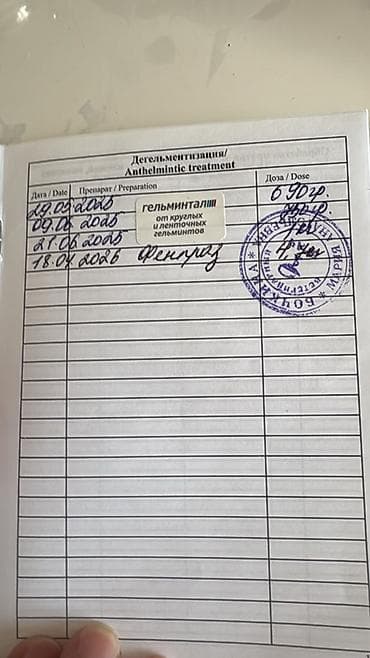 Дегельментизация/
Anthelmintic treatment
Дата / Date Препарат / Preparation Доза / Dose
29.05.2025 690гр.
гельминтал
от круглых
и ленточных
гельминтов
09.06.2025
21.06.2025
18.04.2026 Фенпраз
БОЧКАРЕВА
МАРИЯ